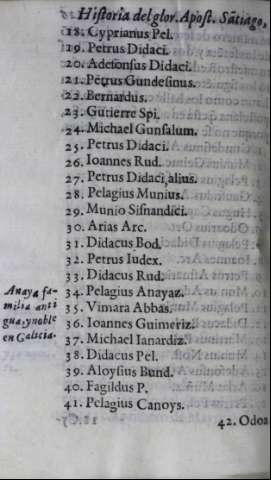 Historia del glor. Apost. Sãtiago,
18. Cyprianus Pel.
19. Petrus Didaci.
20. Adefonsus Didaci.
21. Petrus Gundesinus.
22. Bernardus.
23. Gutierre Spi.
24. Michael Gunsalum.
25. Petrus Didaci.
26. Ioannes Rud.
27. Petrus Didaci, alius.
28. Pelagius Munius.
29. Munio Sisnandici.
30. Arias Arc.
31. Didacus Bod.
32. Petrus Iudex.
33. Didacus Rud.
34. Pelagius Anayaz.
35. Vimara Abbas.
36. Ioannes Guimeriz.
37. Michael Ianardiz.
38. Didacus Pel.
39. Aloysius Bund.
40. Fagildus P.
41. Pelagius Canoys.
42. Odoa
Anaya fa-
milia anti
gua, y noble
en Galicia.